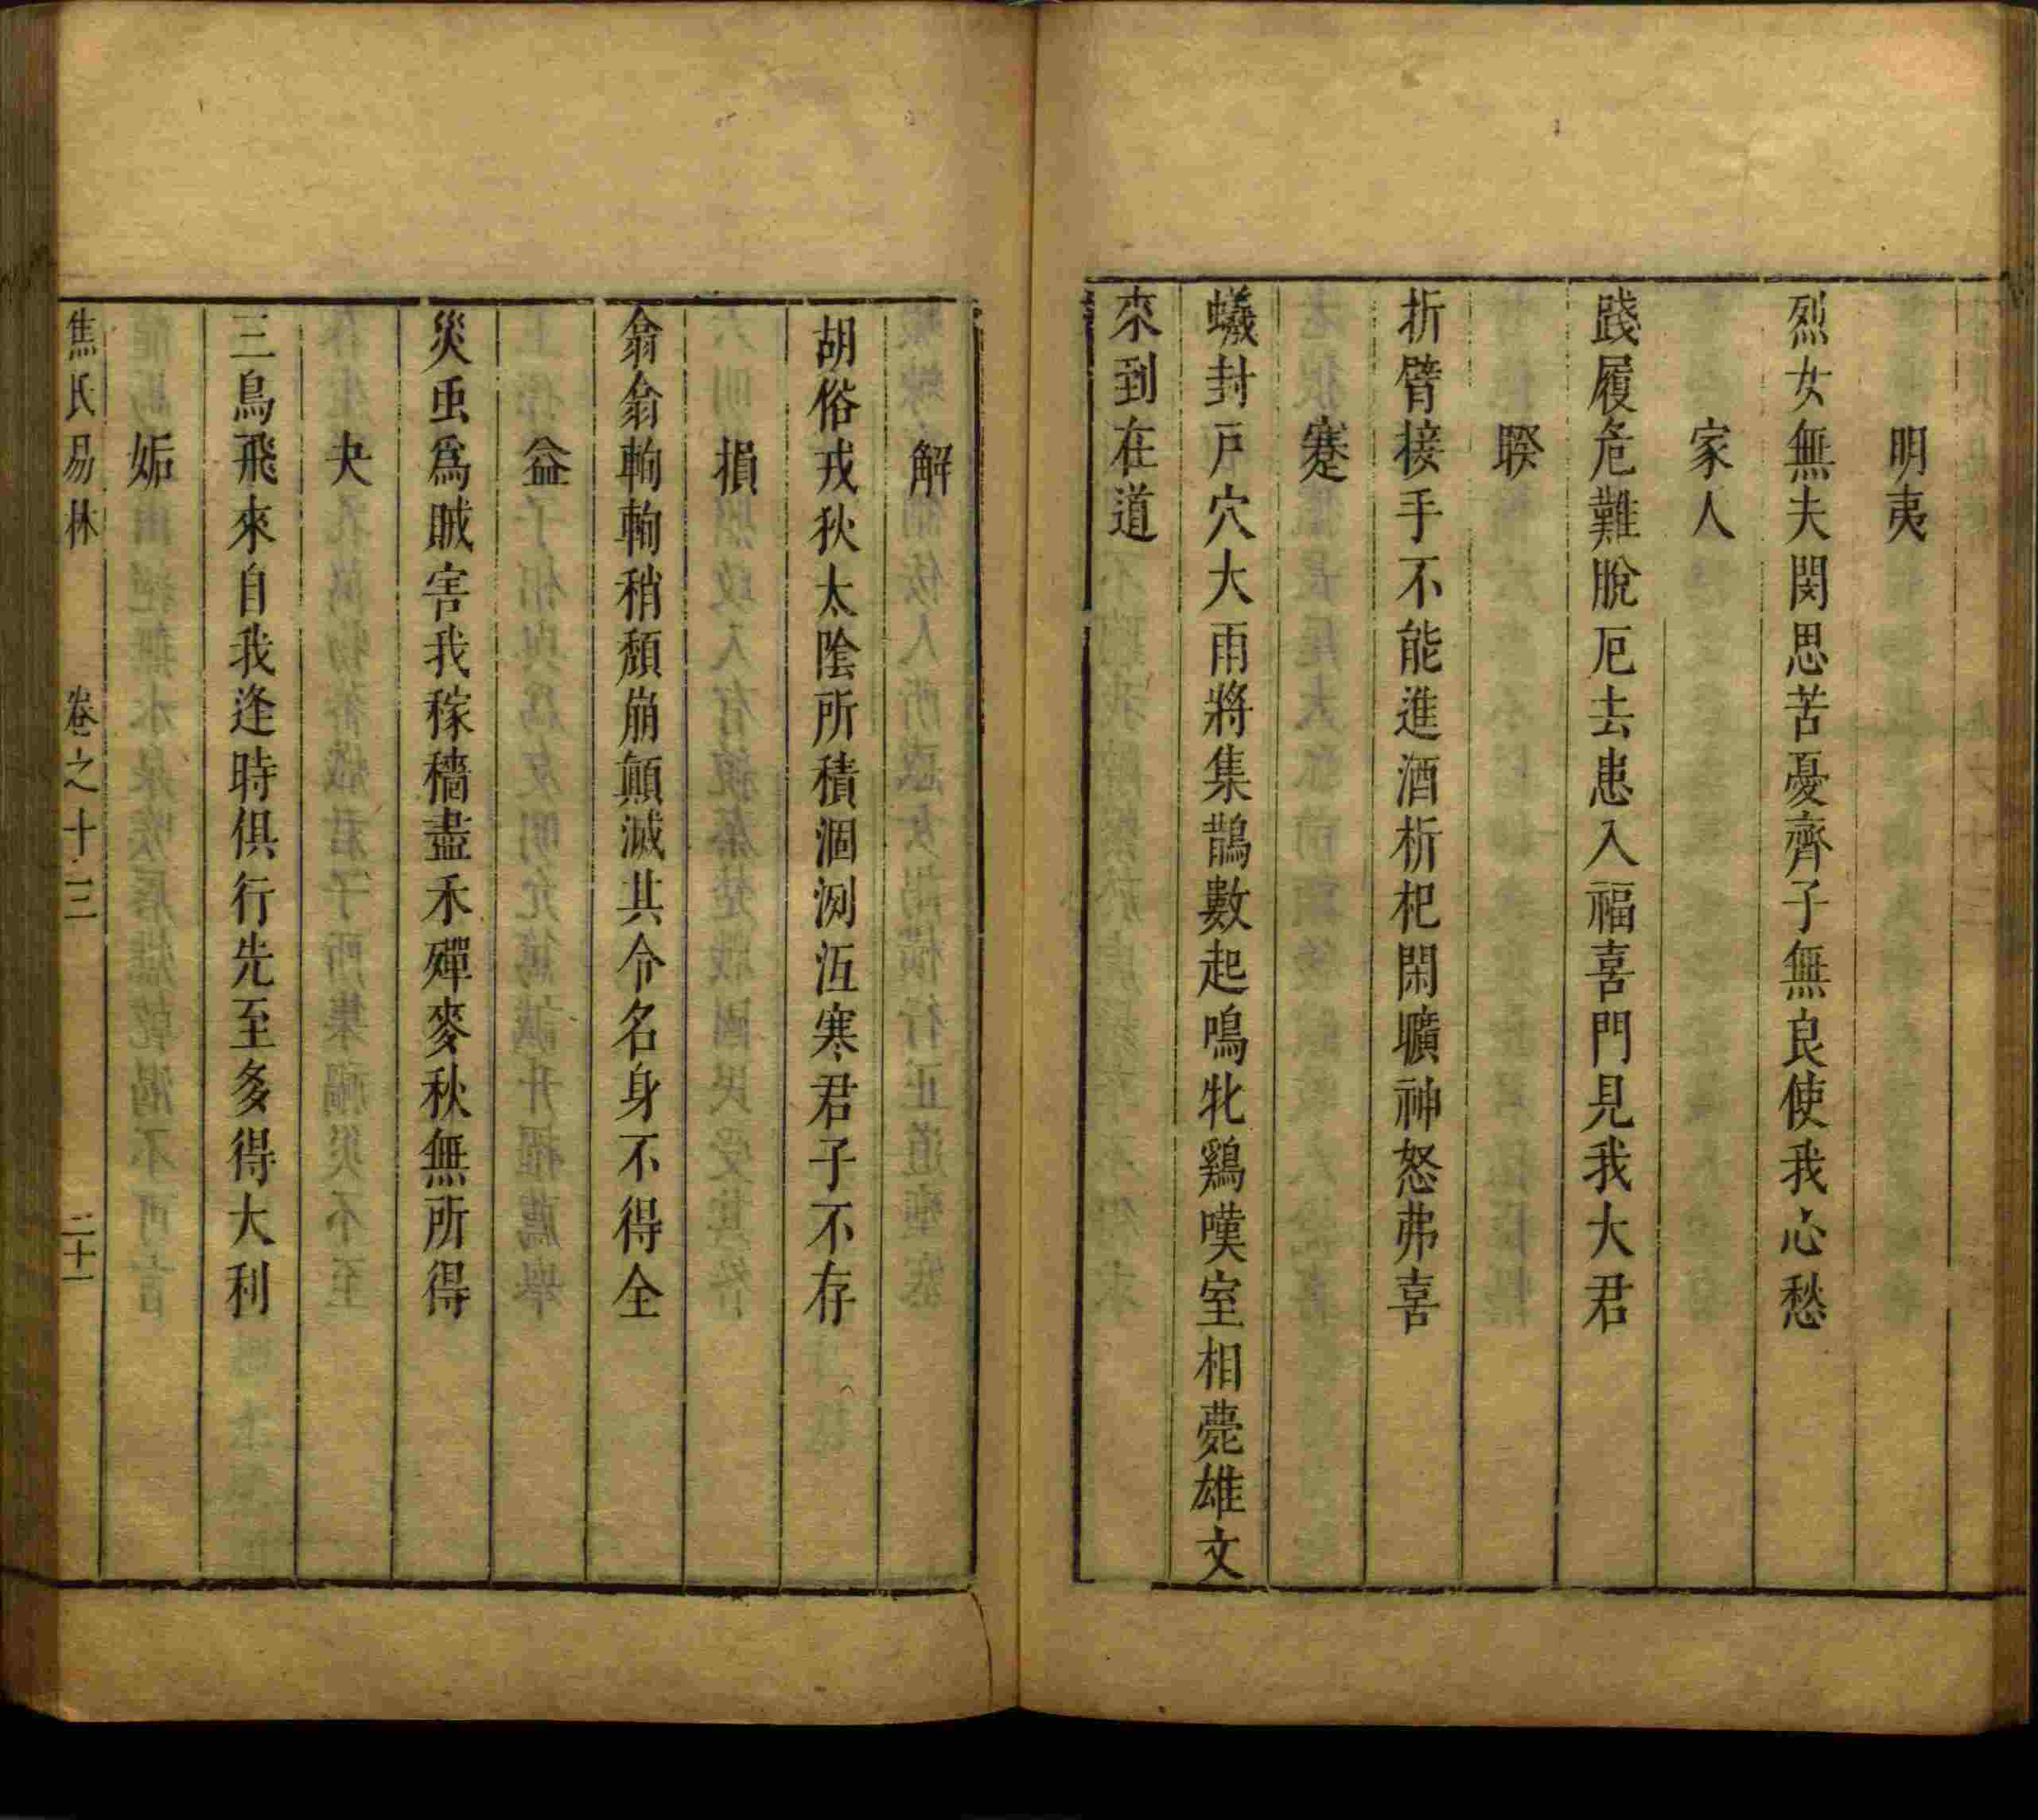 明夷
烈女無夫閔思苦憂齊子無良使我心愁
家人
踐履危難脫厄去患入福喜門見我大君
睽
折臂接手不能進酒析杞閑曠神怒弗喜
蹇
蟻封戶穴大雨將集鵲數起鳴牝鷄嘆室相薨雄文
來到在道
解
胡俗戎狄太陰所積涸洌冱寒君子不存
損
翕翕輷輷稍頹崩顛滅其令名身不得全
益
災虫爲賊害我稼穡盡禾殫麥秋無所得
夬
三鳥飛來自我逢時俱行先至多得大利
姤
焦氏易林 卷之十三 二十一